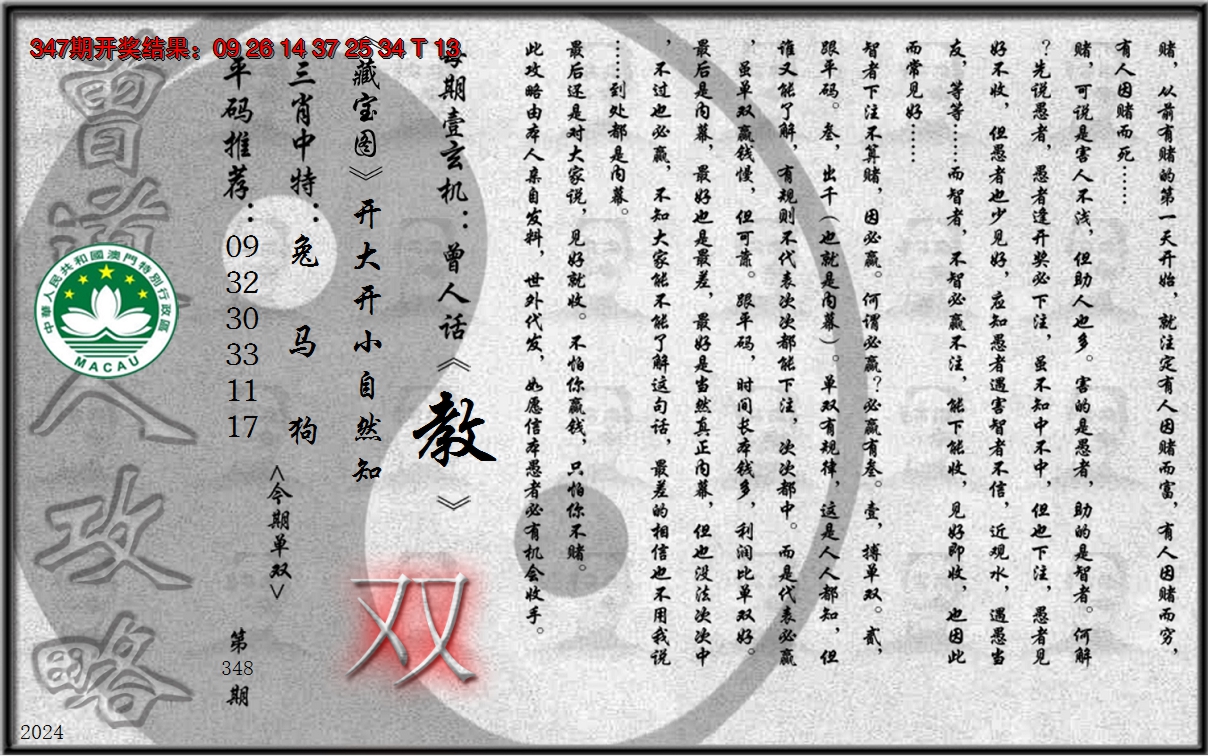 347期开奖结果：09 26 14 37 25 34 T 13
赌，从前有赌的第一天开始，就注定有人因赌而富，有人因赌而穷，
有人因赌而死……
赌，可说是害人不浅，但助人也多。害的是愚者，助的是智者。何解
？先说愚者，愚者逢开奖必下注，虽不知中不中，但也下注，愚者见
好不收，但愚者也少见好，应知愚者遇害智者不信，近观水，遇愚当
友，等等……而智者，不智必赢不注，能下能收，见好即收，也因此
而常见好……
智者下注不算赌，因必赢。何谓必赢？必赢有叁。壹，搏单双。贰，
跟平码。叁，出千（也就是内幕）。单双有规律，这是人人都知，但
谁又能了解，有规则不代表次次都能下注，次次都中。而是代表必赢
，虽单双赢钱慢，但可靠。跟平码，时间长本钱多，利润比单双好。
最后是内幕，最好也是最差，最好是当然真正内幕，但也没法次次中
，不过也必赢，不知大家能不能了解这句话，最差的相信也不用我说
……到处都是内幕。
最后还是对大家说，见好就收。不怕你赢钱，只怕你不赌。
此攻略由本人亲自发料，世外代发，如愿信本愚者必有机会收手。
每期壹玄机：曾人话《教》
《藏宝图》开大开小自然知
双
三肖中特：兔 马 狗
<今期单双>
平码推荐：09 32 30 33 11 17
第348期
曾道人攻略
中華人民共和國澳門特別行政區
MACAU
2024